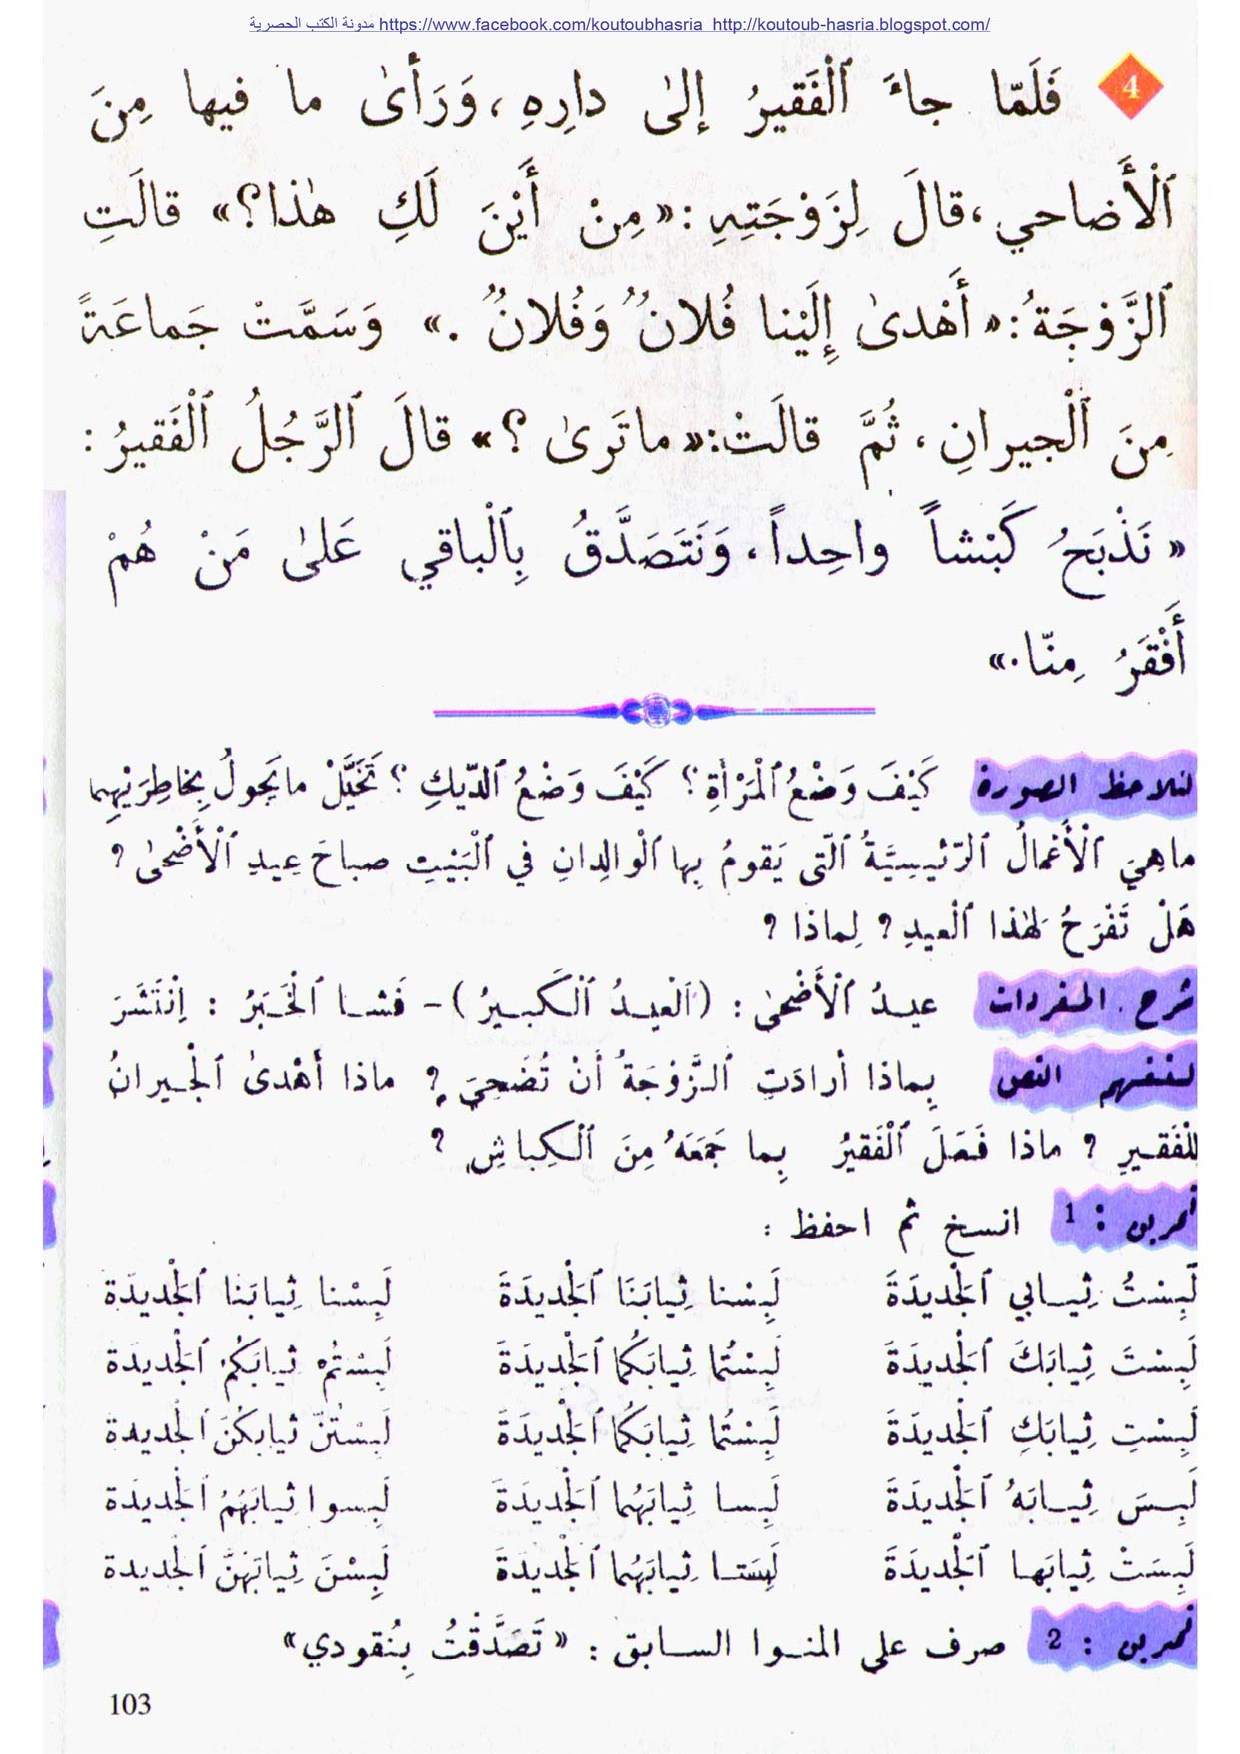 مدونة الكتب الحصرية https://www.facebook.com/koutoubhasria http://koutoub-hasria.blogspot.com/
4 فَلَمّا جاءَ ٱلْفَقيرُ إلىٰ دارِهِ ، وَرَأىٰ ما فيها مِنَ
ٱلْأَضاحي ، قالَ لِزَوْجَتِهِ : « مِنْ أَيْنَ لَكِ هٰذا ؟ » قالَتِ
ٱلزَّوْجَةُ : « أَهْدىٰ إِلَيْنا فُلانٌ وَفُلانٌ . » وَسَمَّتْ جَماعَةً
مِنَ ٱلْجيرانِ ، ثُمَّ قالَتْ : « ماتَرىٰ ؟ » قالَ ٱلرَّجُلُ ٱلْفَقيرُ :
« نَذْبَحُ كَبْشاً واحِداً ، وَنَتَصَدَّقُ بِٱلْباقي عَلىٰ مَنْ هُمْ
أَفْقَرُ مِنّا . »
لنلاحظ الصورة كَيْفَ وَضْعُ ٱلْمَرْأَةِ ؟ كَيْفَ وَضْعُ ٱلدّيكِ ؟ تَخَيَّلْ ما يَجولُ بِخاطِرَيْهِما
ماهِيَ ٱلْأَعْمالُ ٱلرَّئيسِيَّةُ ٱلَّتي يَقومُ بِها ٱلْوالِدانِ في ٱلْبَيْتِ صباحَ عِيدِ ٱلْأَضْحىٰ ؟
هَلْ تَفْرَحُ لِهٰذا ٱلْعيدِ ؟ لِماذا ؟
شرح المفردات عيدُ ٱلْأَضْحىٰ : (ٱلْعيدُ ٱلْكَبيرُ) - فَشا ٱلْخَبَرُ : اِنْتَشَرَ
لنفهم النص بِماذا أرادَتِ ٱلزَّوْجَةُ أَنْ تُضَحِيَ ؟ ماذا أَهْدىٰ ٱلْجيرانُ
لِلْفَقيرِ ؟ ماذا فَعَلَ ٱلْفَقيرُ بِما جَمَعَهُ مِنَ ٱلْكِباشِ ؟
تمرين : 1 انسخ ثم احفظ :
لَبِسْتُ ثِيابي ٱلْجَديدَةَ لَبِسْنا ثِيابَنَا ٱلْجَديدَةَ لَبِسْنا ثِيابَنا ٱلْجَديدَة
لَبِسْتَ ثِيابَكَ ٱلْجَديدَةَ لَبِسْتُما ثِيابَكُما ٱلْجَديدَةَ لَبِسْتُمْ ثيابَكُمْ ٱلْجَديدَة
لَبِسْتِ ثِيابَكِ ٱلْجَديدَةَ لَبِسْتُما ثِيابَكُما ٱلْجَديدَةَ لَبِسْتُنَّ ثيابكُنَ ٱلْجديدة
لَبِسَ ثِيابَهُ ٱلْجَديدَةَ لَبِسا ثِيابَهُما ٱلْجَديدَةَ لَبِسوا ثيابَهُمُ ٱلْجَديدَة
لَبِسَتْ ثِيابَها ٱلْجَديدَةَ لَبِسَتا ثِيابَهُما ٱلْجَديدَةَ لَبِسْنَ ثِيابَهُنَّ ٱلْجَديدة
تمرين : 2 صرف على المنوا السابق : « تَصَدَّقْتُ بِنُقودي »
103